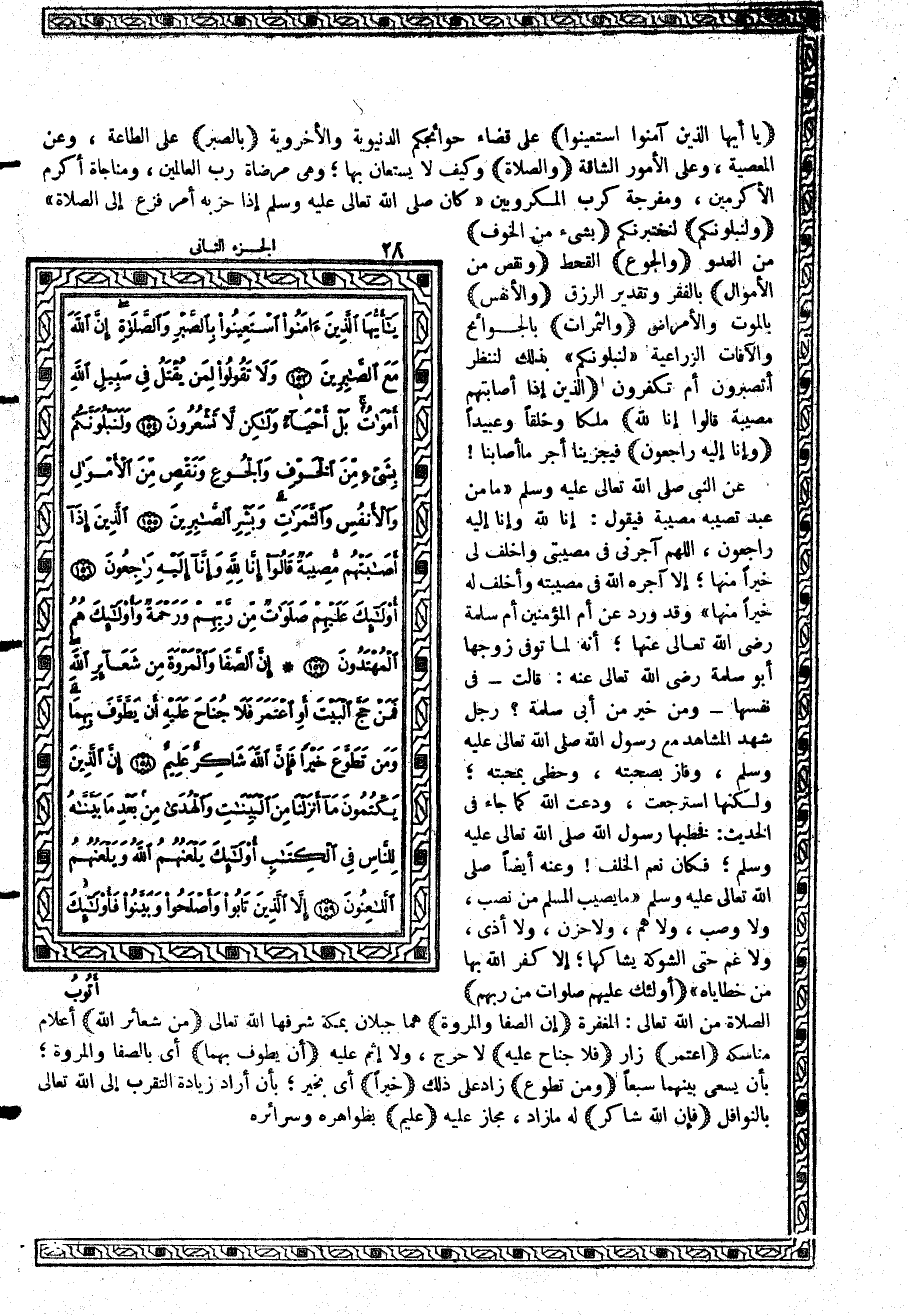 (يا أيها الذين آمنوا استعينوا) على قضاء حوائجكم الدنيوية والأخروية (بالصبر) على الطاعة ، وعن
المعصية ، وعلى الأمور الشاقة (والصلاة) وكيف لا يستعان بها ؛ وهى مرضاة رب العالمين ، ومناجاة أكرم
الأكرمين ، ومفرجة كرب المكروبين «كان صلى الله تعالى عليه وسلم إذا حزبه أمر فزع إلى الصلاة»
(ولنبلونكم) لنختبرنكم (بشىء من الخوف)
من العدو (والجوع) القحط (ونقص من
الأموال) بالفقر وتقدير الرزق (والأنفس)
بالموت والأمراض (والثمرات) بالجوائح
والآفات الزراعية «لنبلونكم» بذلك لننظر
أتصبرون أم تكفرون (الذين إذا أصابتهم
مصيبة قالوا إنا لله) ملكا وخلقاً وعبيداً
(وإنا إليه راجعون) فيجزينا أجر ماأصابنا !
عن النبى صلى الله تعالى عليه وسلم «مامن
عبد تصيبه مصيبة فيقول : إنا لله وإنا إليه
راجعون ، اللهم آجرنى فى مصيبتى واخلف لى
خيراً منها ؛ إلا آجره الله فى مصيبته وأخلف له
خيراً منها» وقد ورد عن أم المؤمنين أم سلمة
رضى الله تعالى عنها ؛ أنه لما توفى زوجها
أبو سلمة رضى الله تعالى عنه : قالت ــ فى
نفسها ــ ومن خير من أبى سلمة ؟ رجل
شهد المشاهد مع رسول الله صلى الله تعالى عليه
وسلم ، وفاز بصحبته ، وحظى بمحبته ؛
ولكنها استرجعت ، ودعت الله كما جاء فى
الحديث : فخطبها رسول الله صلى الله تعالى عليه
وسلم ؛ فكان نعم الخلف ! وعنه أيضاً صلى
الله تعالى عليه وسلم «مايصيب المسلم من نصب ،
ولا وصب ، ولا هم ، ولاحزن ، ولا أذى ،
ولا غم حتى الشوكة يشاكها ؛ إلا كفر الله بها
من خطاياه» (أولئك عليهم صلوات من ربهم)
٢٨ الجزء الثانى
يَـٰٓأَيُّهَا الَّذِينَ ءَامَنُوا۟ اسْتَعِينُوا۟ بِالصَّبْرِ وَالصَّلَوٰةِ إِنَّ اللَّهَ
مَعَ الصَّـٰبِرِينَ ١٥٣ وَلَا تَقُولُوا۟ لِمَن يُقْتَلُ فِى سَبِيلِ اللَّهِ
أَمْوَٰتٌۢ بَلْ أَحْيَآءٌ وَلَـٰكِن لَّا تَشْعُرُونَ ١٥٤ وَلَنَبْلُوَنَّكُم
بِشَىْءٍ مِّنَ الْخَوْفِ وَالْجُوعِ وَنَقْصٍ مِّنَ الْأَمْوَٰلِ
وَالْأَنفُسِ وَالثَّمَرَٰتِ وَبَشِّرِ الصَّـٰبِرِينَ ١٥٥ الَّذِينَ إِذَآ
أَصَـٰبَتْهُم مُّصِيبَةٌ قَالُوٓا۟ إِنَّا لِلَّهِ وَإِنَّآ إِلَيْهِ رَٰجِعُونَ ١٥٦
أُو۟لَـٰٓئِكَ عَلَيْهِمْ صَلَوَٰتٌ مِّن رَّبِّهِمْ وَرَحْمَةٌ وَأُو۟لَـٰٓئِكَ هُمُ
الْمُهْتَدُونَ ١٥٧ * إِنَّ الصَّفَا وَالْمَرْوَةَ مِن شَعَآئِرِ اللَّهِ
فَمَنْ حَجَّ الْبَيْتَ أَوِ اعْتَمَرَ فَلَا جُنَاحَ عَلَيْهِ أَن يَطَّوَّفَ بِهِمَا
وَمَن تَطَوَّعَ خَيْرًا فَإِنَّ اللَّهَ شَاكِرٌ عَلِيمٌ ١٥٨ إِنَّ الَّذِينَ
يَكْتُمُونَ مَآ أَنزَلْنَا مِنَ الْبَيِّنَـٰتِ وَالْهُدَىٰ مِنۢ بَعْدِ مَا بَيَّنَّـٰهُ
لِلنَّاسِ فِى الْكِتَـٰبِ أُو۟لَـٰٓئِكَ يَلْعَنُهُمُ اللَّهُ وَيَلْعَنُهُمُ
اللَّـٰعِنُونَ ١٥٩ إِلَّا الَّذِينَ تَابُوا۟ وَأَصْلَحُوا۟ وَبَيَّنُوا۟ فَأُو۟لَـٰٓئِكَ
أَتُوبُ
الصلاة من الله تعالى : المغفرة (إن الصفا والمروة) هما جبلان بمكة شرفها الله تعالى (من شعائر الله) أعلام
مناسكه (اعتمر) زار (فلا جناح عليه) لا حرج ، ولا إثم عليه (أن يطوف بهما) أى بالصفا والمروة ؛
بأن يسعى بينهما سبعاً (ومن تطوع) زادعلى ذلك (خيراً) أى بخير ؛ بأن أراد زيادة التقرب إلى الله تعالى
بالنوافل (فإن الله شاكر) له مازاد ، مجاز عليه (عليم) بظواهره وسرائره